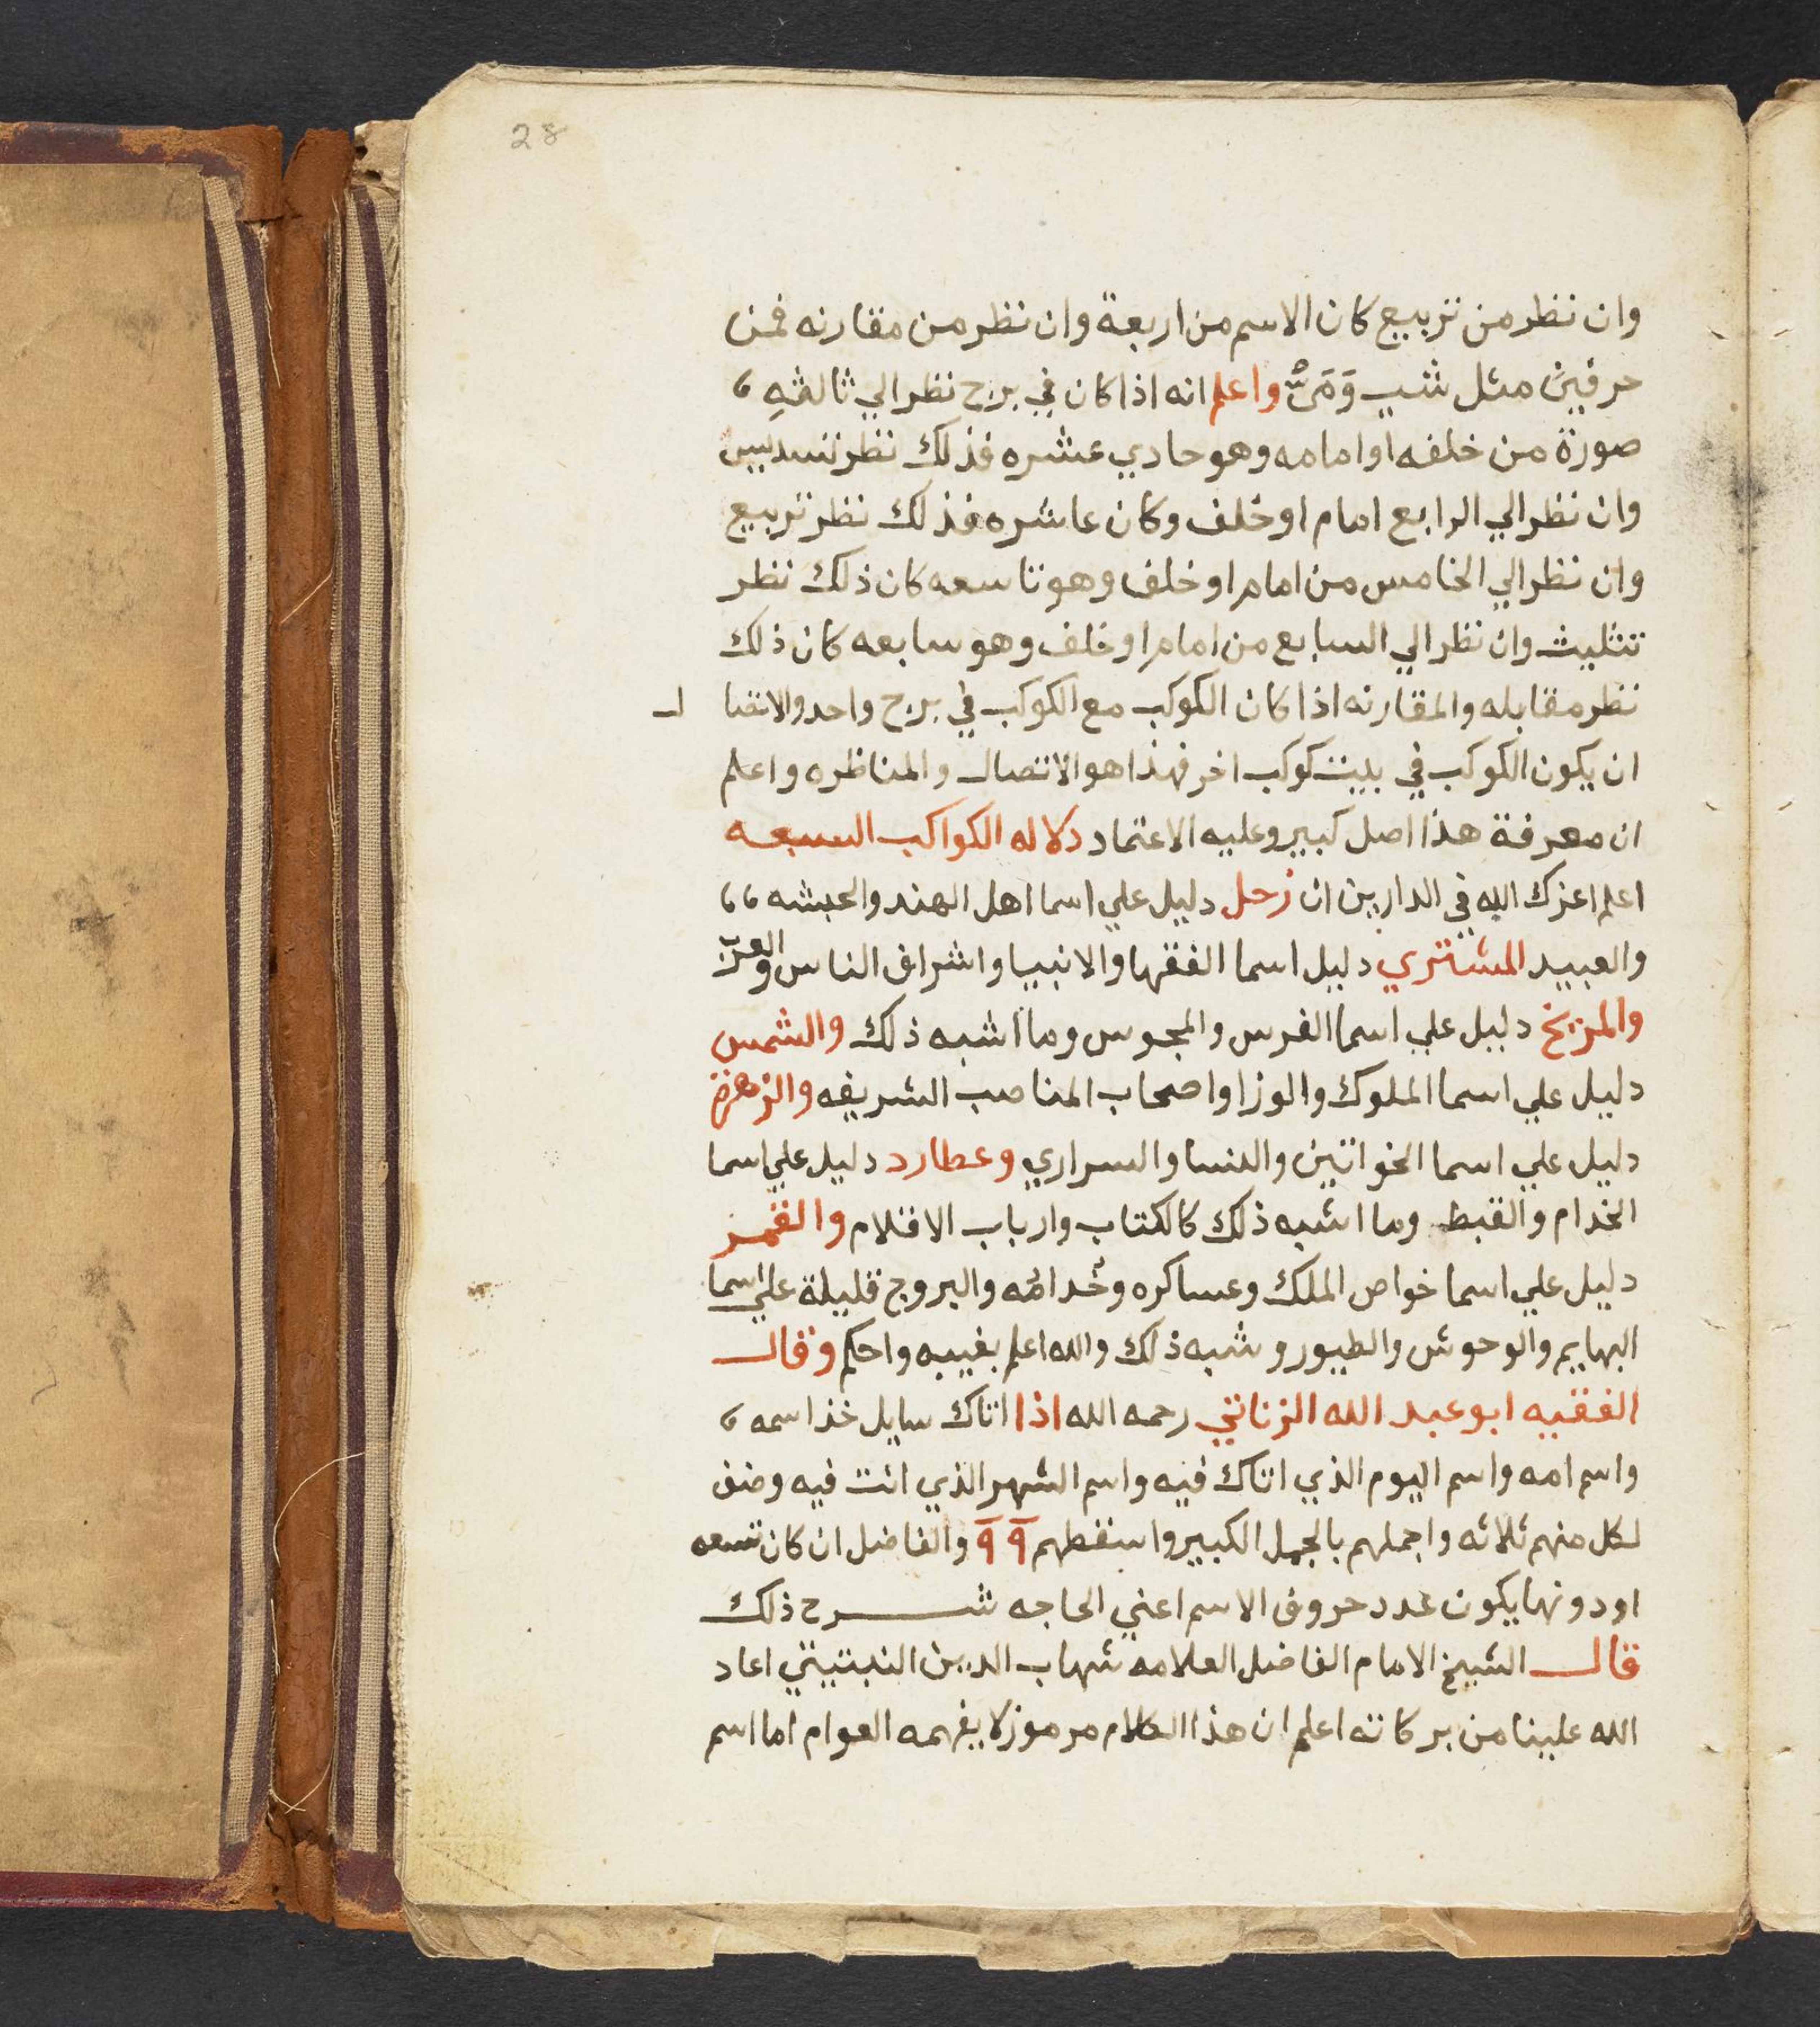 28
وان نظر من تربيع كان الاسم من اربعة وان نظر من مقارنه فمن
حرفين مثل شب وَمَنْ واعلم انه اذا كان في برج نظر الي ثالثهِ
صورة من خلفه او امامه وهو حادي عشره فذلك نظر تسديس
وان نظر الي الرابع امام او خلف وكان عاشره فذلك نظر تربيع
وان نظر الي الخامس من امام او خلف وهو تاسعه كان ذلك نظر
تثليث وان نظر الي السابع من امام او خلف وهو سابعه كان ذلك
نظر مقابله والمقارنه اذا كان الكوكب مع الكوكب في برج واحد والاتصال
ان يكون الكوكب في بيت كوكب اخر فهذا هو الاتصال والمناظره واعلم
ان معرفة هذا اصل كبير وعليه الاعتماد دلاله الكواكب السبعه
اعلم اعزك الله في الدارين ان زحل دليل علي اسما اهل الهند والحبشه
والعبيد المشتري دليل اسما الفقها والانبيا واشراف الناس والعرب
والمريخ دليل علي اسما الفرس والمجوس وما اشبه ذلك والشمس
دليل علي اسما الملوك والوزرا واصحاب المناصب الشريفه والزهرة
دليل علي اسما الخواتين والنسا والسراري وعطارد دليل علي اسما
الخدام والقبط وما اشبه ذلك كالكتاب وارباب الاقلام والقمر
دليل علي اسما خواص الملك وعساكره وخُدامه والبروج قليلة علي اسما
البهايم والوحوش والطيور وشبه ذلك والله اعلم بغيبه واحكم وقال
الفقيه ابو عبد الله الزناتي رحمه الله اذا اتاك سايل خذ اسمه
واسم امه واسم اليوم الذي اتاك فيه واسم الشهر الذي انت فيه وضف
لكل منهم ثلاثه واجملهم بالجمل الكبير واسقطهم ٩ ٩ والفاضل ان كان تسعه
او دونها يكون عدد حروف الاسم اعني الحاجه شرح ذلك
قال الشيخ الامام الفاضل العلامه شهاب الدين النبتيتي اعاد
الله علينا من بركاته اعلم ان هذا الكلام مرموز لا يفهمه العوام اما اسم